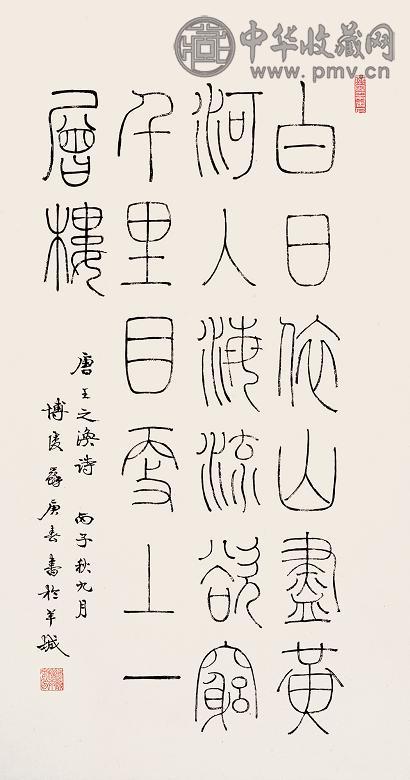 中华收藏网
www.pmv.cn
白日依山盡黃
河入海流欲窮
千里目更上一
層樓
唐王之渙詩 丙子秋九月
博陵蘇庚春書於羊城